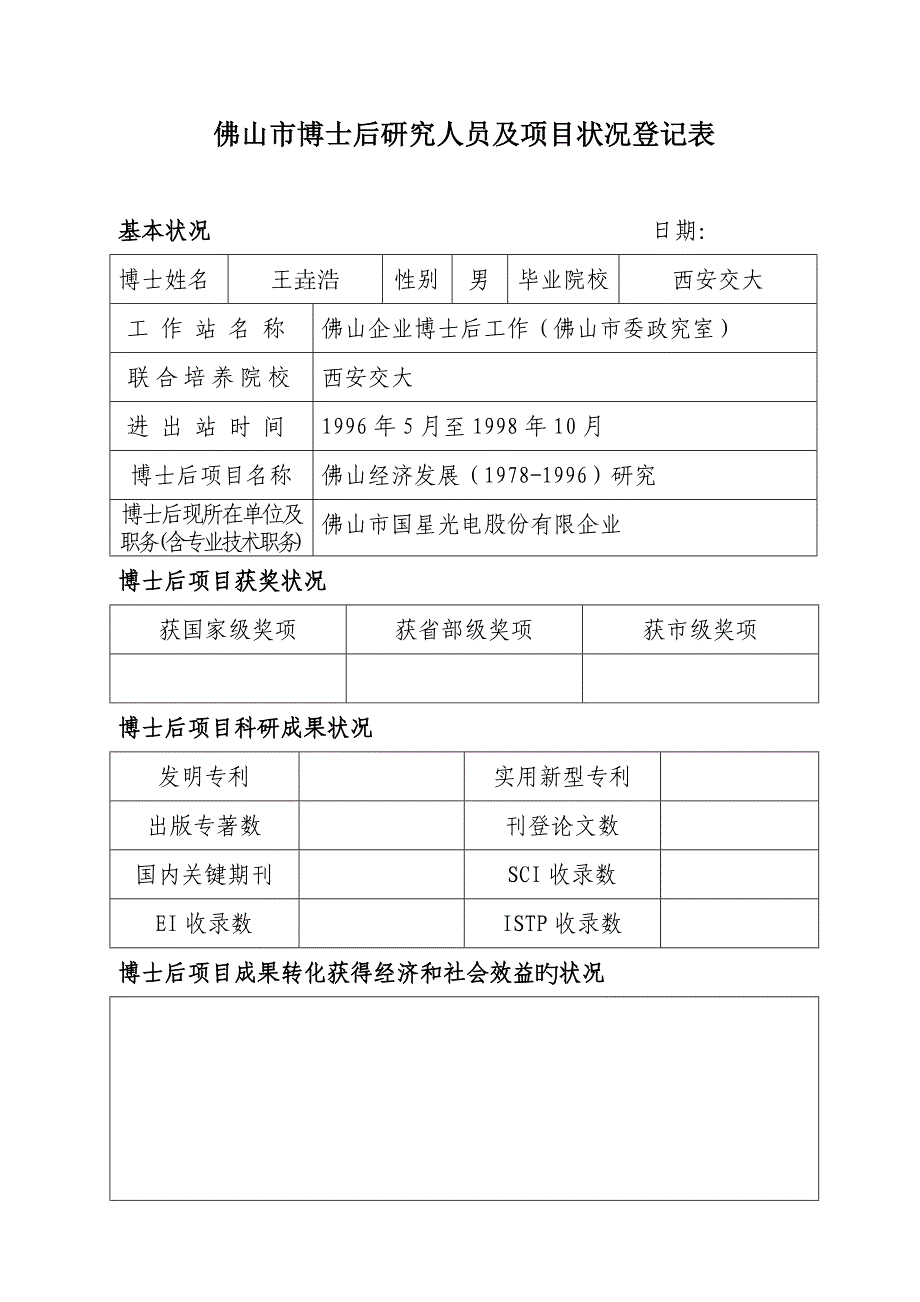 佛山市博士后研究人员及项目状况登记表
基本状况 日期:
博士姓名 王垚浩 性别 男 毕业院校 西安交大
工作站名称 佛山企业博士后工作(佛山市委政究室)
联合培养院校 西安交大
进出站时间 1996年5月至1998年10月
博士后项目名称 佛山经济发展(1978-1996)研究
博士后现所在单位及
职务(含专业技术职务) 佛山市国星光电股份有限企业
博士后项目获奖状况
获国家级奖项 获省部级奖项 获市级奖项
博士后项目科研成果状况
发明专利 实用新型专利
出版专著数 刊登论文数
国内关键期刊 SCI收录数
EI收录数 ISTP收录数
博士后项目成果转化获得经济和社会效益旳状况